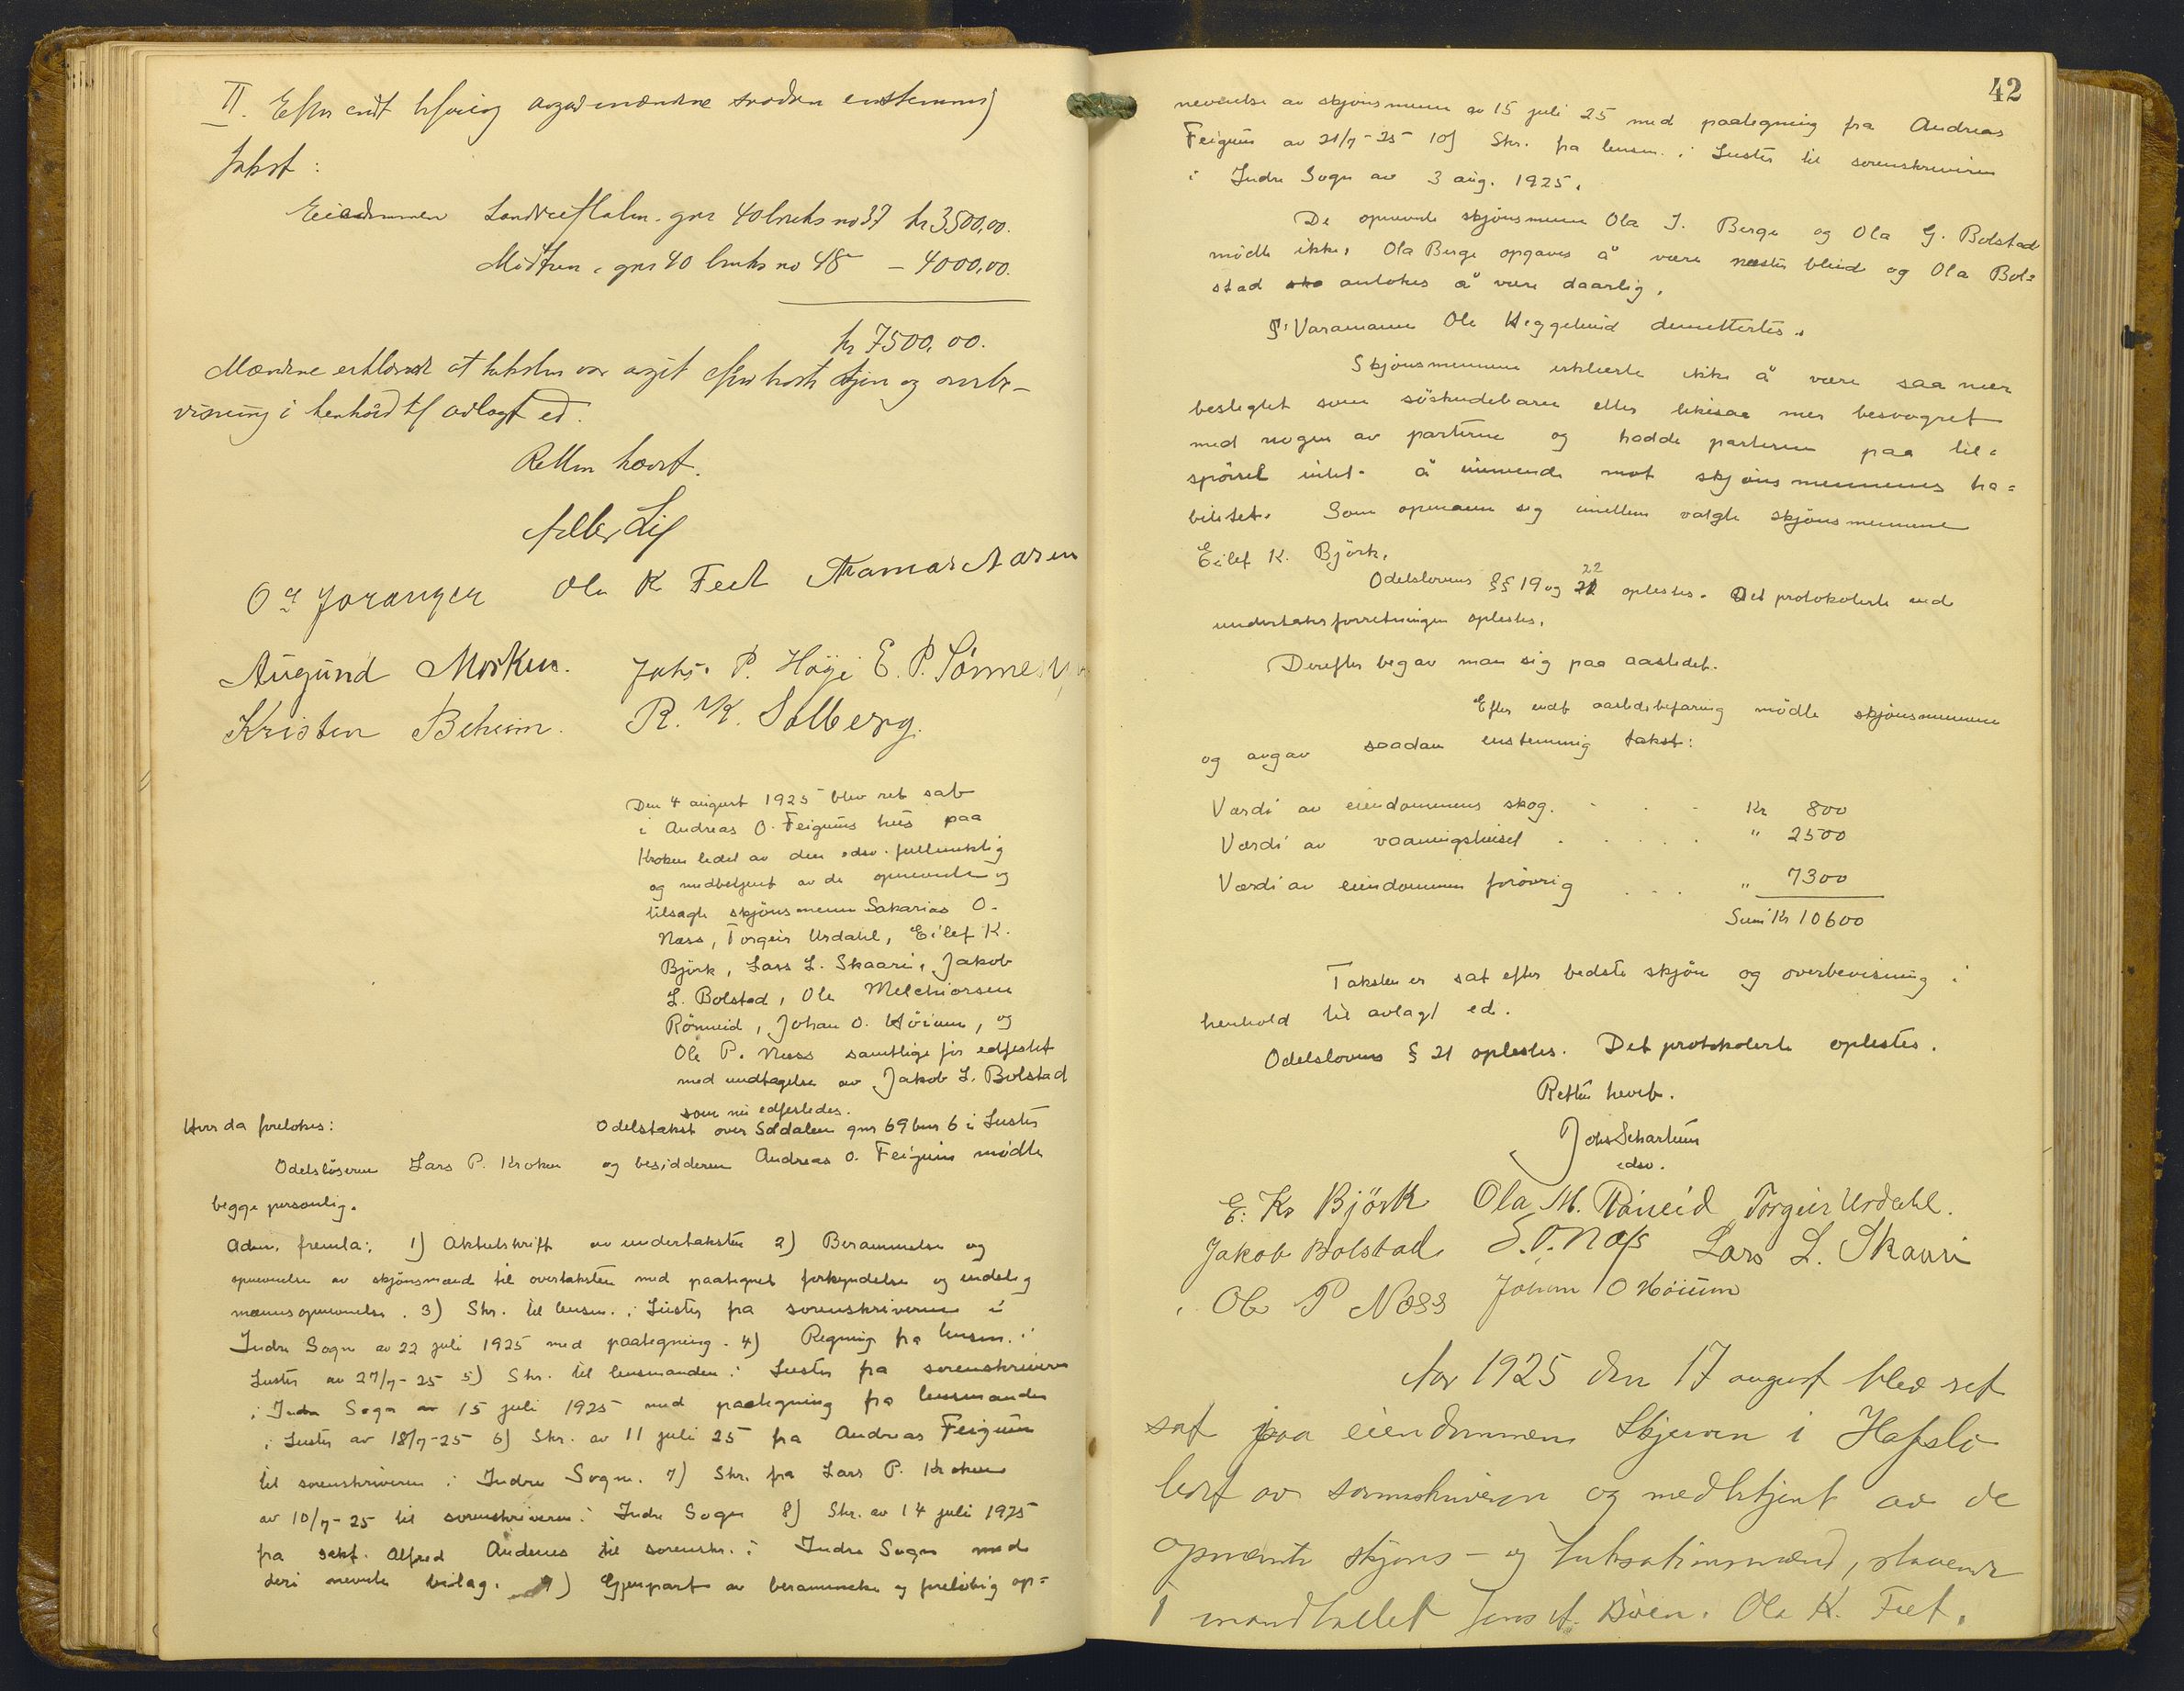 II. Efter endt befaring avgav mændene saadan enstemmig
takst:
Eiendommen Landvikflaten. gnr 40 bruks no 37 kr 3500,00.
Midtun, gnr 40 bruks no 48 – 4000,00.
kr 7500,00.
Mændene erklærede at taksten var avgit efter beste skjön og overbe-
visning i henhold til avlagt ed.
Retten hævet.
O. J. Joranger Ola K Feet Thomas Aasen
Augund Morken. Johs. P. Høyé E. P.
Kristen Beheim. R. K. Solberg.
Den 4 august 1925 blev ret sat
i Andreas O. Feigums hus paa
Kroken ledet av den edsv. fullmektig
og medbetjent av de opnevnte og
tilsagte skjönsmenn Sakarias O.
Næss, Torgeir Urdahl, Eilef K.
Björk, Lars L. Skaari, Jakob
L. Bolstad, Ole Melchiorsen
Röneid, Johan O. Höium, og
Ole P. Næss samtlige för edfestet
med undtagelse av Jakob L. Bolstad
som nu edfestedes.
Hvor da foretokes: Odelstakst over Soldalen gnr 69 bnr 6 i Luster
Odelslöseren Lars P. Kroken og besidderen Andreas O. Feigum mödte
begge personlig.
Adm. fremla: 1) Aktutskrift av undertaksten 2) Berammelse og
opnevnelse av skjönsmænd til overtaksten med paategnet forkyndelse og endelig
mannsopnevnelse. 3) Skr. til lensm. i Luster fra sorenskriveren i
Indre Sogn av 22 juli 1925 med paategning. 4) Regning fra lensm. i
Luster av 27/7-25 5) Skr. til lensmanden i Luster fra sorenskriveren
i Indre Sogn av 15 juli 1925 med paategning fra lensmanden
i Luster av 18/7-25 6) Skr. av 11 juli 25 fra Andreas Feigum
til sorenskriveren i Indre Sogn. 7) Skr. fra Lars P. Kroken
av 10/7-25 til sorenskriveren i Indre Sogn 8) Skr. av 14 juli 1925
fra sakf. Alfred Andenes til sorenskr. i Indre Sogn med
deri nevnte bielag. 9) Gjenpart av berammelse og forelöbig op=
42
nevnelse av skjönsmenn av 15 juli 25 med paategning fra Andreas
Feigum av 21/7-25 10) Skr. fra lensm. i Luster til sorenskriveren
i Indre Sogn av 3 aug. 1925.
De opnevnte skjönsmenn Ola J. Berge og Ola G. Bolstad
mödte ikke, Ola Berge opgaves å være næsten blind og Ola Bol=
stad antokes å være daarlig.
Varamann Ole Heggelund demitteertes.
Skjönsmennene erklærte ikke å være saa nær
beslegtet som söskendebarn eller likesaa nær besvogret
med nogen av parterne og hadde parterne paa til=
spörsel intet å innvende mot skjönsmennenes ha=
bilitet. Som opmann sig imellem valgte skjönsmennene
Eilef K. Björk.
Odelslovens §§ 19 og 22 oplestes. Det protokolerte ved
undertaksforretningen oplestes.
Derefter begav man sig paa aastedet.
Efter endt aastedsbefaring mödte skjönsmennene
og avgav saadan enstemmig takst:
Værdi av eiendommens skog. . . . Kr 800
Værdi av vaaningshuset . . . . . " 2500
Værdi av eiendommen forövrig . . . " 7300
Sum Kr 10600
Taksten er sat efter bedste skjön og overbevisning i
henhold til avlagt ed.
Odelslovens § 21 oplestes. Det protokolerte oplestes.
Retten hevet.
Johs Schartum
edsv.
E. Kr Björk Ola M. Röneid Torgeir Urdahl.
Jakob Bolstad S. O. Næss Lars L. Skaari
Ole P Næss Johan O Höium
Aar 1925 den 17 august blev ret
sat paa eiendommen Skjerven i Hafslo
ledet av sorenskriveren og medbetjent av de
opnævnte skjöns- og taksationsmænd, staaende
i mandtallet Jens A. Böen. Ola K. Feet.